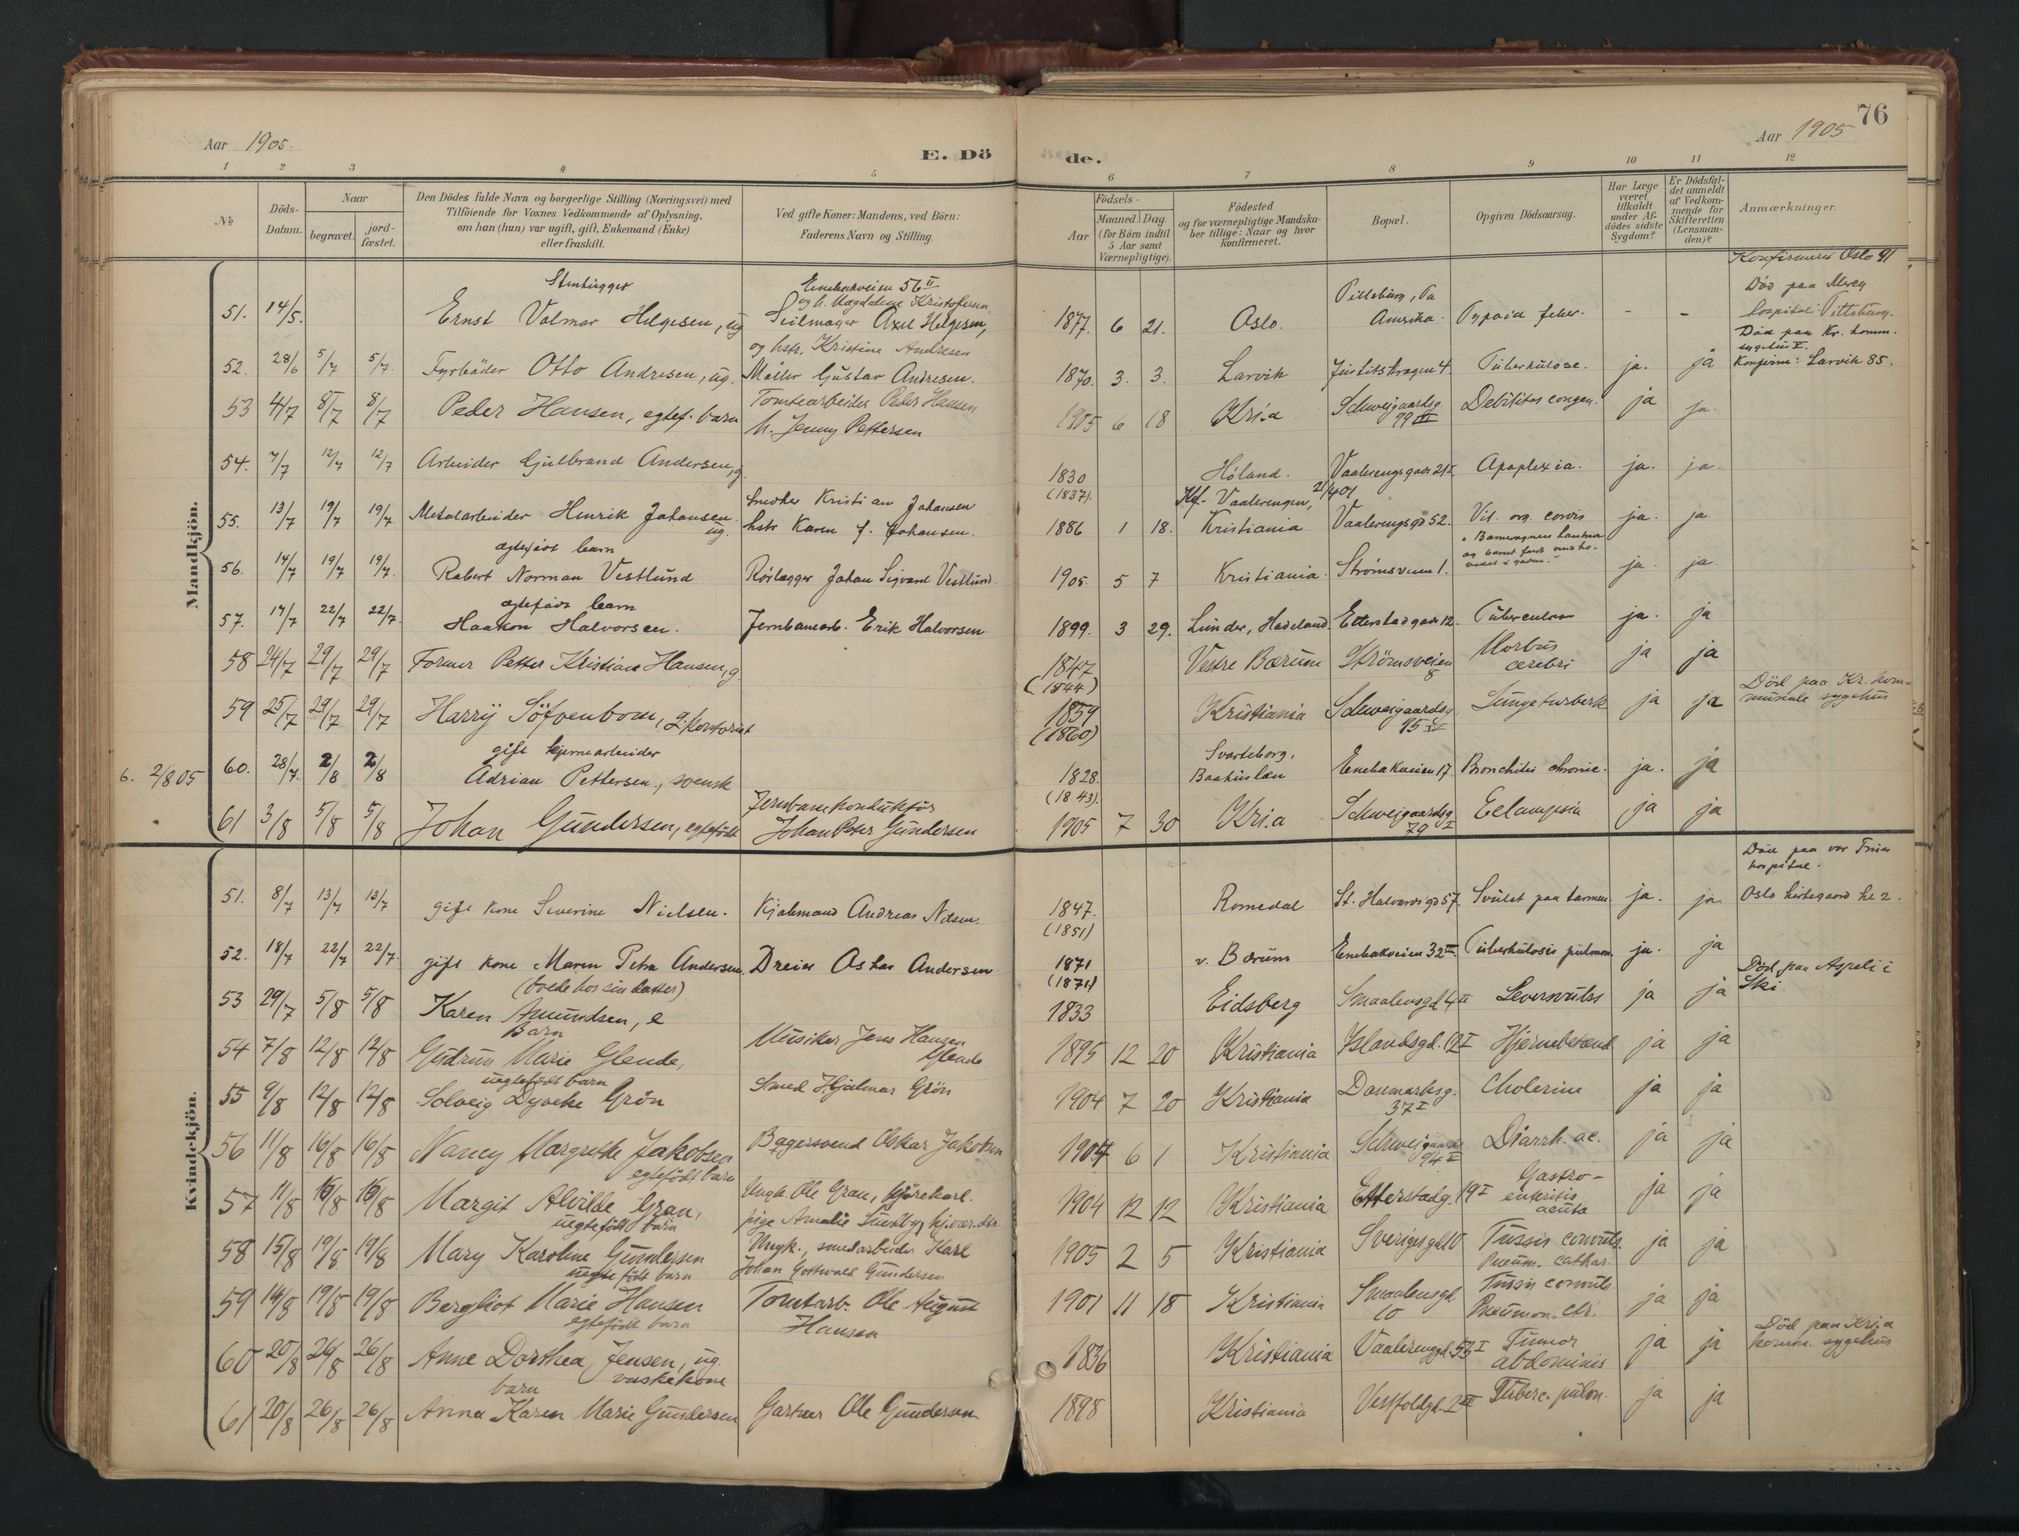 76
Aar 1905.
Aar 1905
E. Dö
de.
1 2 3 4 5
6 7 8 9 10 11 12
No
Döds-Datum.
Naar
begravet.
jord-fæstet.
Den Dödes fulde Navn og borgerlige Stilling (Næringsvei) med
Tilföiende for Voxnes Vedkommende af Oplysning,
om han (hun) var ugift, gift, Enkemand (Enke)
eller fraskilt.
Ved gifte Koner: Mandens, ved Börn:
Faderens Navn og Stilling.
Födsels-
Aar
Maaned
Dag
(for Börn indtil
5 Aar samt
Værnepligtige).
Födested
og for værnepligtige Mandska-
ber tillige: Naar og hvor
konfirmeret.
Bopæl.
Opgiven Dödsaarsag.
Har Læge
været
tilkaldt
under Af-
dödes sidste
Sygdom?
Er Dödsfal-
det anmeldt
af Vedkom-
mende for
Skifteretten
(Lensman-
den)?
Anmærkninger.
Mandkjön.
Stenhugger Enebakveien 56 II Konfirmeret Oslo 91
og h. Magdalene Kristofersen Pittsburg, Pa Död paa Mercy
51. 14/5. Ernst Valmar Helgesen, ug Seilmager Axel Helgesen, 1877. 6 21. Oslo. Amerika. Typoid feber. - - hospital Pittsburg.
og hstr. Kristine Andresen Död paa Kr. komm. sygehus
52. 28/6 5/7 5/7. Fyrböder Otto Andresen, ug. Möller Gustav Andresen. 1870. 3. 3. Larvik 4. Tuberkulose. ja. ja Konfirm: Larvik 85.
53 4/7 8/7 8/7 Peder Hansen, egtef. barn Tomtearbeider Peder Hansen 1905 6 18 Kria Schweigaardsg 99 III Debilitas congen. ja ja.
h. Jenny Pettersen
54. 7/7 12/7 12/7 Arbeider Gulbrand Andersen, g 1830 Höland. Vaalerengsgaden 21 I Apoplexia. ja. ja.
(1837). Kf. Vaalerengen, 2/4 01
55. 13/7 19/7 19/7 Metalarbeider Henrik Johansen ug. Smeder Kristian Johansen
hstr Karen f. Johansen. 1886 1 18. Kristiania Vaalerengsgd 52. Vit. org. cordis ja. ja
egtefödt barn
56. 14/7 19/7 19/7. Robert Norman Vestlund Rörlægger Johan Sigvard Vestlund. 1905. 5 7 Kristiania. Strömsveien 1. ja. ja.
egtefödt barn
57. 17/7 22/7 22/7. Haakon Halvorsen. Jernbanearb. Erik Halvorsen 1899. 3 29. Lunder, Hadeland. Etterstadgaden 12. Tuberculose ja. ja
58 24/7 29/7 29/7 Former Petter Kristian Hansen, g 1847 Vestre Bærum Strömsveien 8 Morbus cerebri ja ja
(1844)
59 25/7 29/7 29/7 Harry Söfvenbom, g, kontorist 1859 Kristiania Schweigaardsg 95 Lungetuberk ja ja Död paa Kr. kom-
munale sygehus
(1860)
6. 2/8 05
gift hjernearbeider
60. 28/7. 2/8 2/8 Adrian Pettersen, svensk 1828. Svarteborg, Baahuslen Enebakveien 17 Bronchitis chronic. ja. ja
(1843).
61 3/8 5/8 5/8 Johan Gundersen, egtefödt Jernbanekonduktör
Johan Peter Gundersen 1905 7 30 Kria Schweigaardsg 79 I Eclampsia ja ja
Kvindekjön.
51. 8/7 13/7 13/7 gift kone Severine Nielsen. Kjolemand Andreas Nilsen. 1847. Romedal St. Halvards gd 57. Svulst paa tarmen. ja. ja. Död paa vor Frues
hospital.
Oslo hospital
(1851)
52. 18/7 22/7 22/7. gift kone Maren Petra Andersen Dreier Oskar Andersen 1871 v. Bærum Enebakveien 32 III Tuberkulosis pulmon. ja. ja
(boede hos sin datter) (1871)
53 29/7 5/8 5/8 Karen Amundsen, e 1833 Eidsberg Smaalensgd. 4 II Leversvulst ja ja Död paa Aspeli i
Ski
Barn
54 7/8 12/8 12/8 Gudrun Marie Glende, Musiker Jens Hansen Glende 1895 12 20 Kristiania Islandsgd. 12 I Hjernebetænd ja ja
uegtefödt barn
55 9/8 12/8 12/8 Solveig Dyveke Grön Smed Hjalmar Grön 1904 7 20 Kristiania Danmarksg. 37 I Cholerine ja ja
56 11/8 16/8 16/8 Nancy Margrethe Jakobsen Bagersvend Oskar Jakobsen 1904 6 1 Kristiania Schweigaardsg 94 Diarrh. ac. ja ja
egtefödt barn
57 11/8 16/8 16/8 Margit Alvilde Gran, Ungk. Ole Gran, kjörekarl.
uegtefödt barn pige Amalie Sundby, hjvær. dtr. 1904 12 12 Kristiania Etterstadg. 19 I Gastro-
enteritis
acuta ja ja
58 15/8 19/8 19/8 Mary Karoline Gundersen Ungk., smedarbeider Karl
uegte födt barn Johan Gottvald Gundersen 1905 2 5 Kristiania Sverigesgd. 10 Tussis convuls.
Pneum. cathar. ja ja
59 14/8 19/8 19/8 Bergliot Marie Hansen Tomtarb. Ole August
egtefödt barn Hansen 1901 11 18 Kristiania Smaalensgd. 10 Tussis convuls.
Pneumon. chr. ja ja
60 20/8 26/8 26/8 Anne Dorthea Jensen, ug. vaskekone 1836 Kristiania Vaalerengd. 53 I Tumor
abdominis ja ja Död paa Kria
komm. sygehus
barn
61 20/8 26/8 26/8 Anna Karen Marie Gundersen Gartner Ole Gundersen 1898 Kristiania Vestfoldgd. 2 III Tuberc. pulm. ja ja